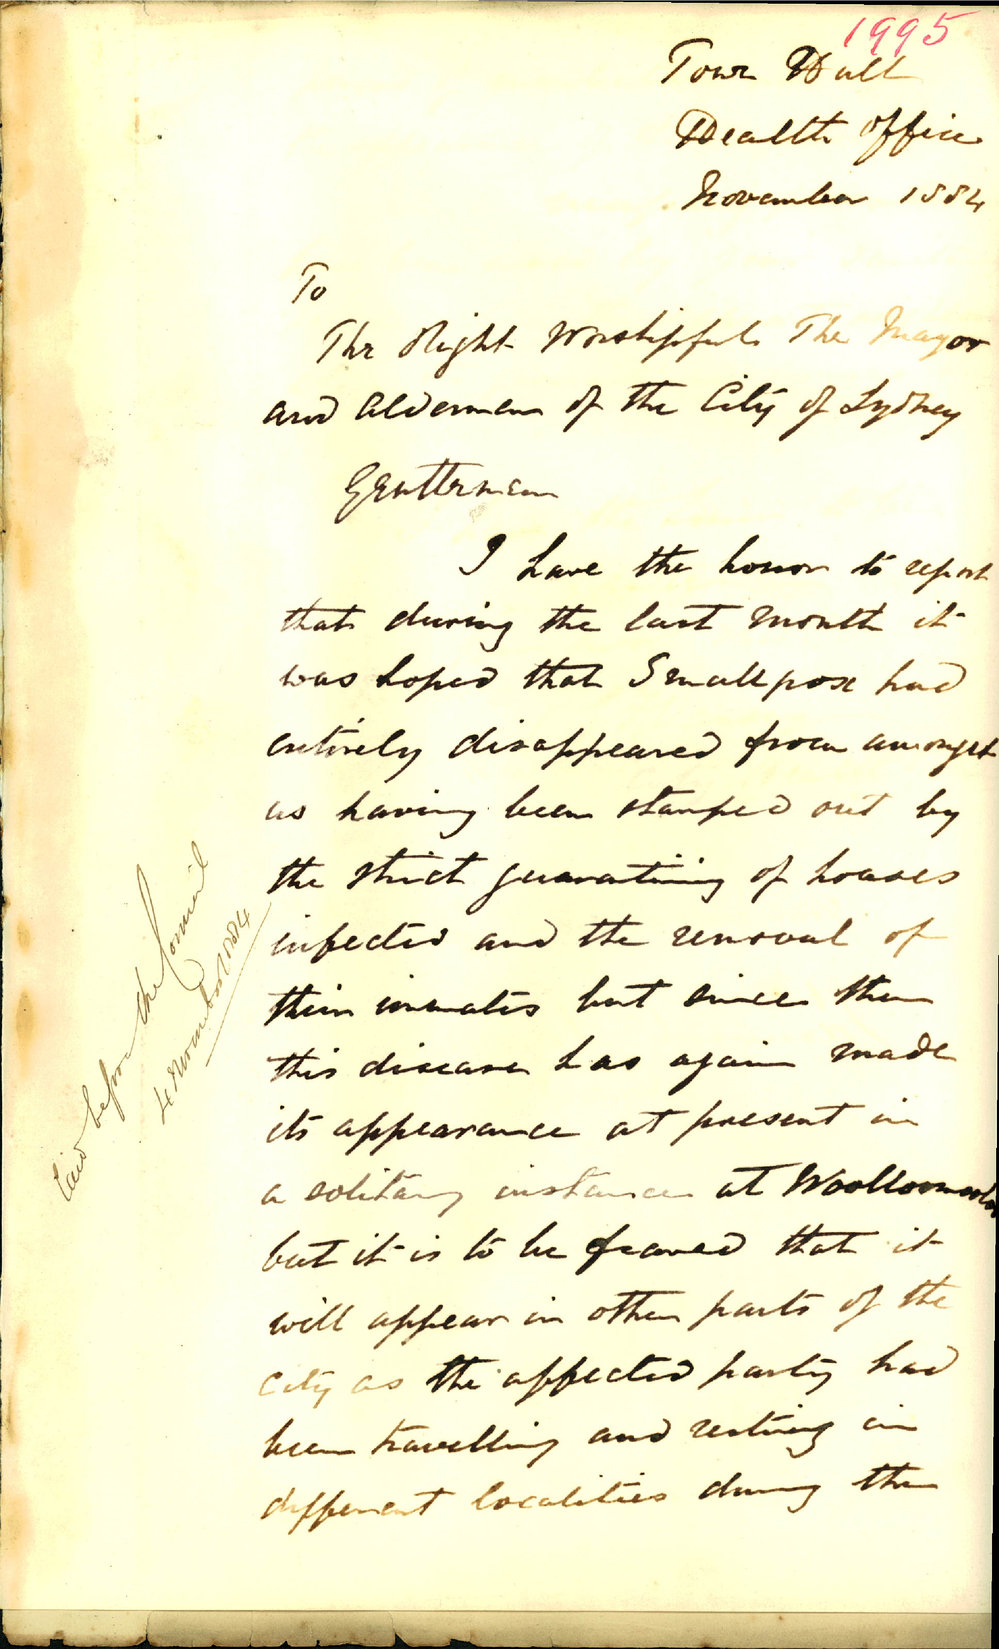 1995
Town Hall
Health Office
November 1884
To
The Right Worshipful The Mayor
and Aldermen of the City of Sydney
Gentlemen
I have the honor to report
that during the last month it
was hoped that Smallpox had
entirely disappeared from amongst
us having been stamped out by
the strict quarantining of houses
infected and the removal of
their inmates but since then
this disease has again made
its appearance at present in
a solitary instance at Woolloomooloo
but it is to be feared that it
will appear in other parts of the
City as the affected party had
been travelling and resting in
different localities during the
Laid before the Council
4 November 1884